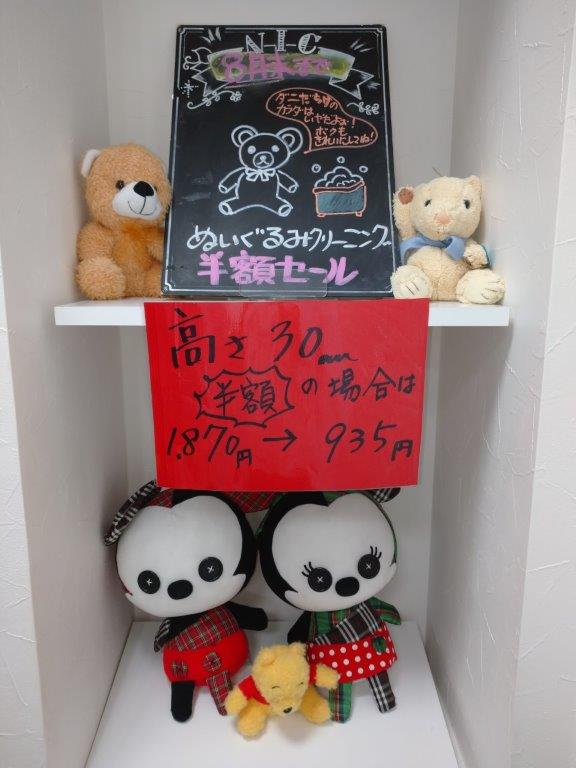 N-I-C
8月末まで
ダニだらけの
カラダは
いやだよぉ!
ボクも
きれいにしてね!
ぬいぐるみクリーニング
半額セール
高さ30cm
半額の場合は
1,870円→935円